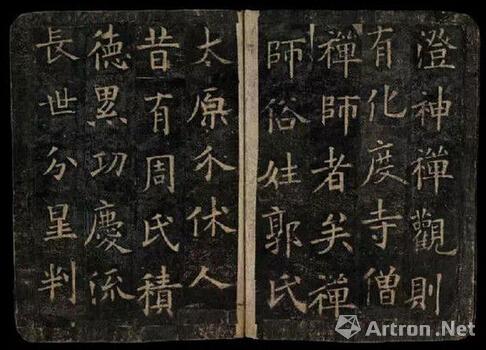 澄神禪觀則
有化度寺僧
禪師者矣禪
師俗姓郭氏
太原介休人
昔有周氏積
德累功慶流
長世分星判
Artron.Net